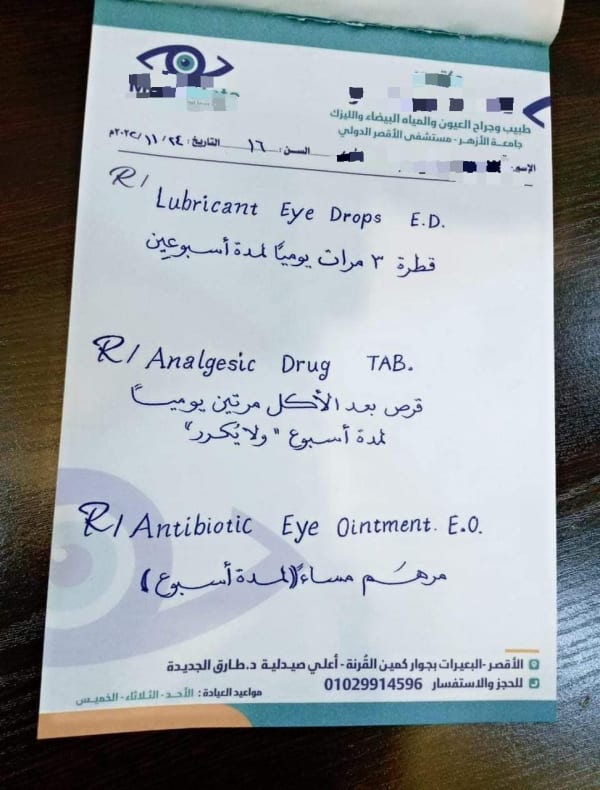 طبيب وجراح العيون والمياه البيضاء والليزك
جامعة الأزهر - مستشفى الأقصر الدولي
السن: ١٦ التاريخ: ٢٤ / ١١ / ٢٠٢٢م
R/ Lubricant Eye Drops E.D.
قطرة ٣ مرات يومياً لمدة أسبوعين
R/ Analgesic Drug TAB.
قرص بعد الأكل مرتين يومياً
لمدة أسبوع "ولا يُكرر"
R/ Antibiotic Eye Ointment. E.O.
مرهم مساءً (لمدة أسبوع)
الأقصر -البعيرات بجوار كمين القُرنة - أعلي صيدلية د.طارق الجديدة
للحجز والاستفسار 01029914596
مواعيد العيادة : الأحد - الثلاثاء - الخميس